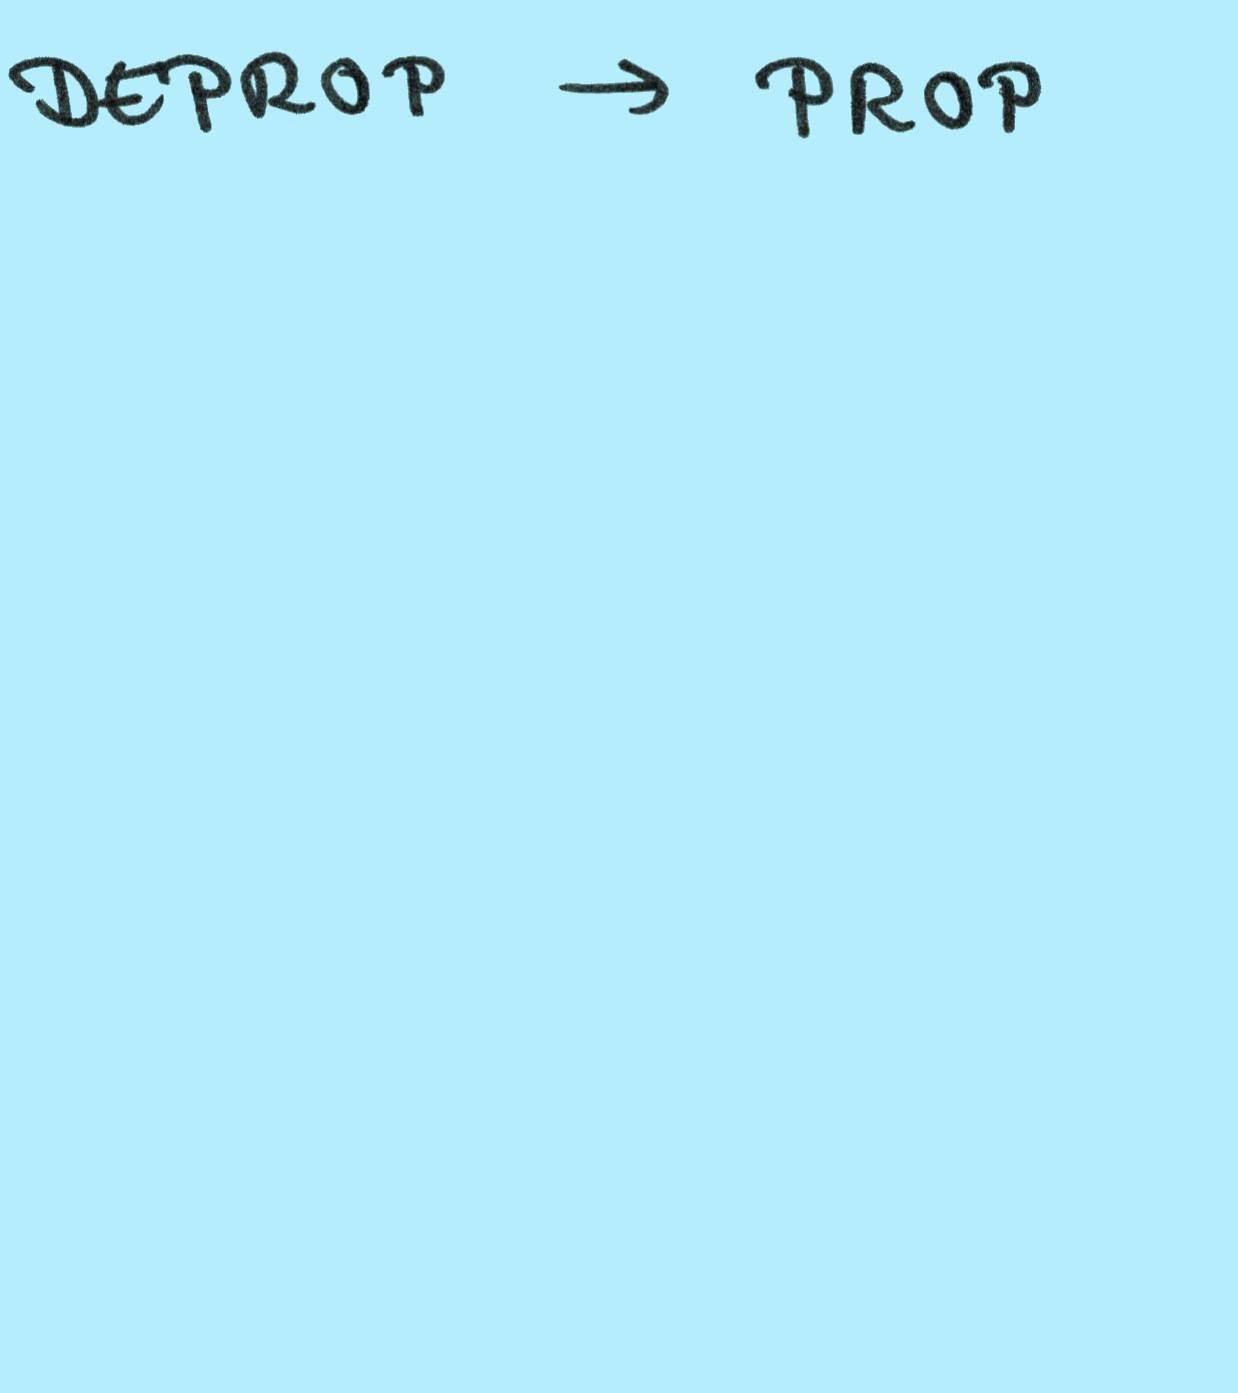 DEPROP → PROP